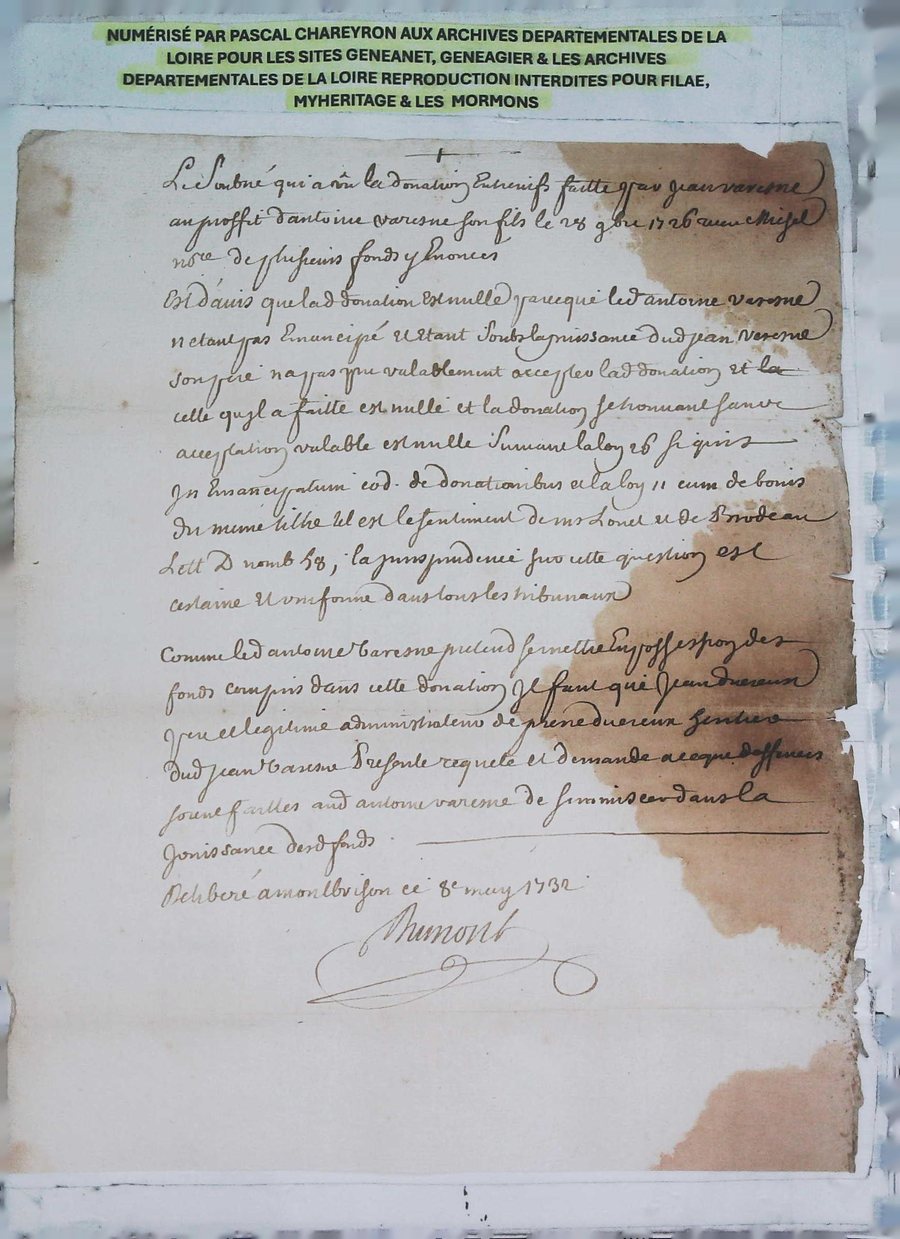 NUMÉRISÉ PAR PASCAL CHAREYRON AUX ARCHIVES DEPARTEMENTALES DE LA
LOIRE POUR LES SITES GENEANET, GENEAGIER & LES ARCHIVES
DEPARTEMENTALES DE LA LOIRE REPRODUCTION INTERDITES POUR FILAE,
MYHERITAGE & LES MORMONS
Le Soubné qui a vû la donation Entrevifs faitte par jean varesne
au proffit dantoine varesne son fils le 28 9bre 1726 Michel
nore de plusieurs fonds y Enonces
Est d'avis que lad donation Est nulle parceque led antoine varesne
n etant pas Emancipé et Etant Soubs la puissance dud jean varesne
son pere na pas peu valablement accepter lad donation et la
celle qu'il a faitte est nulle et la donation se trouvant sans
acceptation valable est nulle Suivant la loy 26 si quis
In Emancipatum cod. de donationibus et la loy 11 cum de bonis
du meme tithe tel est le sentiment de mr Louet et de Brodeau
Lett D nomb 58, la jurisprudence sur cette question est
certaine et uniforme dans tous les tribunaux
Comme led antoine Varesne pretend se mettre En possession des
fonds compris dans cette donation Il faut que Jean duereux
pere et legitime administrateur de duereux heritier
dud jean Varesne Presente requete et demande aceque deffences
soient faittes aud antoine varesne de simmiscer dans la
Jouissance desd fonds
Delibéré a montbrison ce 8e may 1732
Dumont